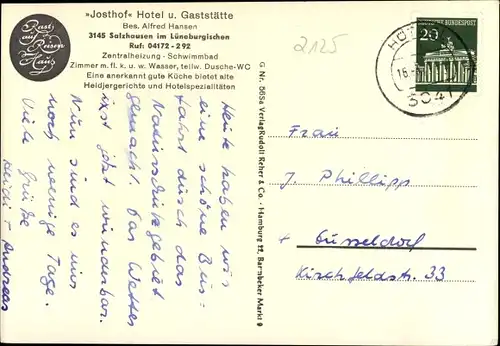 »Josthof« Hotel u. Gaststätte
Bes. Alfred Hansen
3145 Salzhausen im Lüneburgischen
Ruf: 04172-292
Zentralheizung - Schwimmbad
Zimmer m. fl. k. u. w. Wasser, teilw. Dusche-WC
Eine anerkannt gute Küche bietet alte
Heidjergerichte und Hotelspezialitäten
Rast
auf
Reisen
Haus
Heute haben wir
eine schöne Bus-
fahrt durch das
Naturschutzgebiet
gemacht. Das Wetter
ist jetzt wunderbar.
Nun sind es nur
noch wenige Tage.
Viele Grüße
Heidi + Andreas
G Nr. 565a Verlag Rudolf Reher & Co. - Hamburg 22, Barmbeker Markt 9
2125
HÖ
16.
304
20
DEUTSCHE BUNDESPOST
Frau
J. Phillipp
4 Düsseldorf
Kirchfeldstr. 33